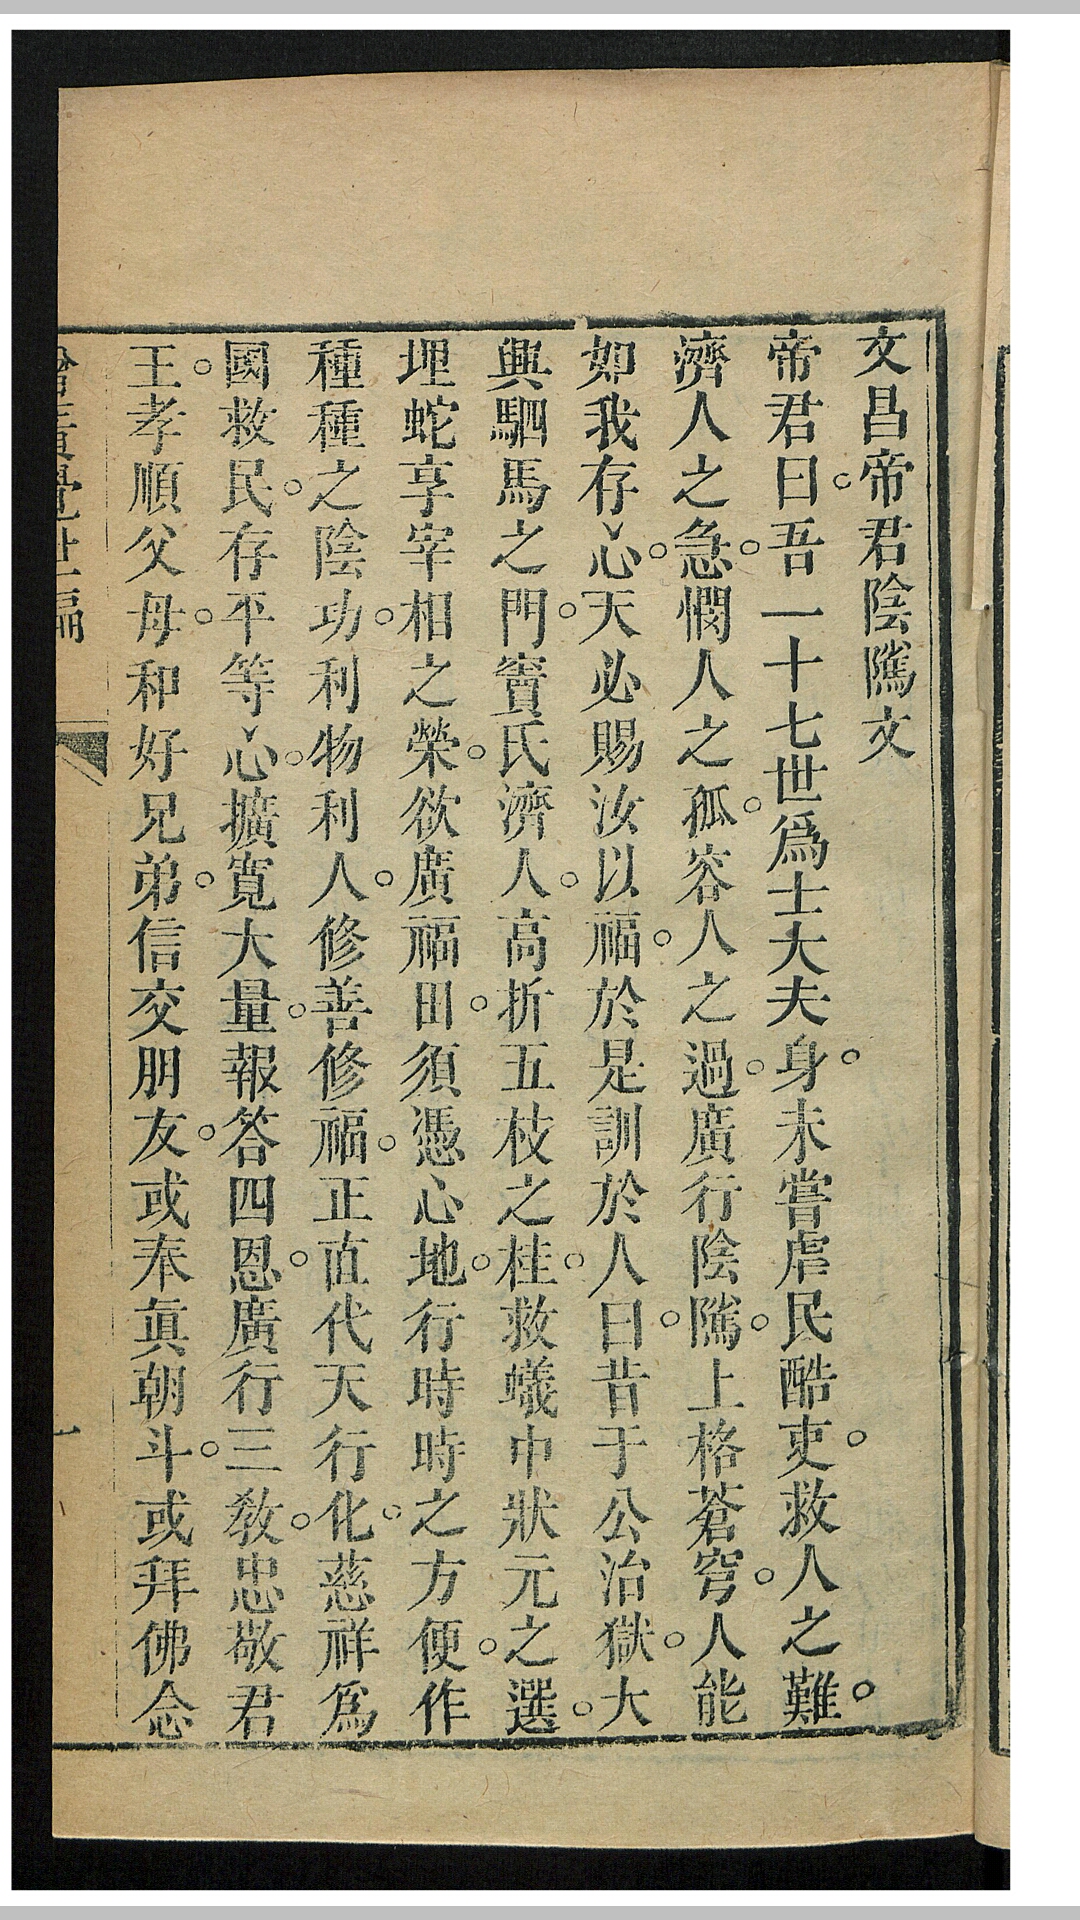 文昌帝君陰隲文
帝君曰。吾一十七世爲士大夫身。未嘗虐民酷吏。救人之難。
濟人之急。憫人之孤。容人之過。廣行陰隲。上格蒼穹。人能
如我存心。天必賜汝以福。於是訓於人曰。昔于公治獄。大
興駟馬之門。竇氏濟人。高折五枝之桂。救蟻中狀元之選。
埋蛇享宰相之榮。欲廣福田。須憑心地。行時時之方便。作
種種之陰功。利物利人。修善修福。正直代天行化。慈祥爲
國救民。存平等心。擴寬大量。報答四恩。廣行三教。忠敬君
王。孝順父母。和好兄弟。信交朋友。或奉眞朝斗。或拜佛念